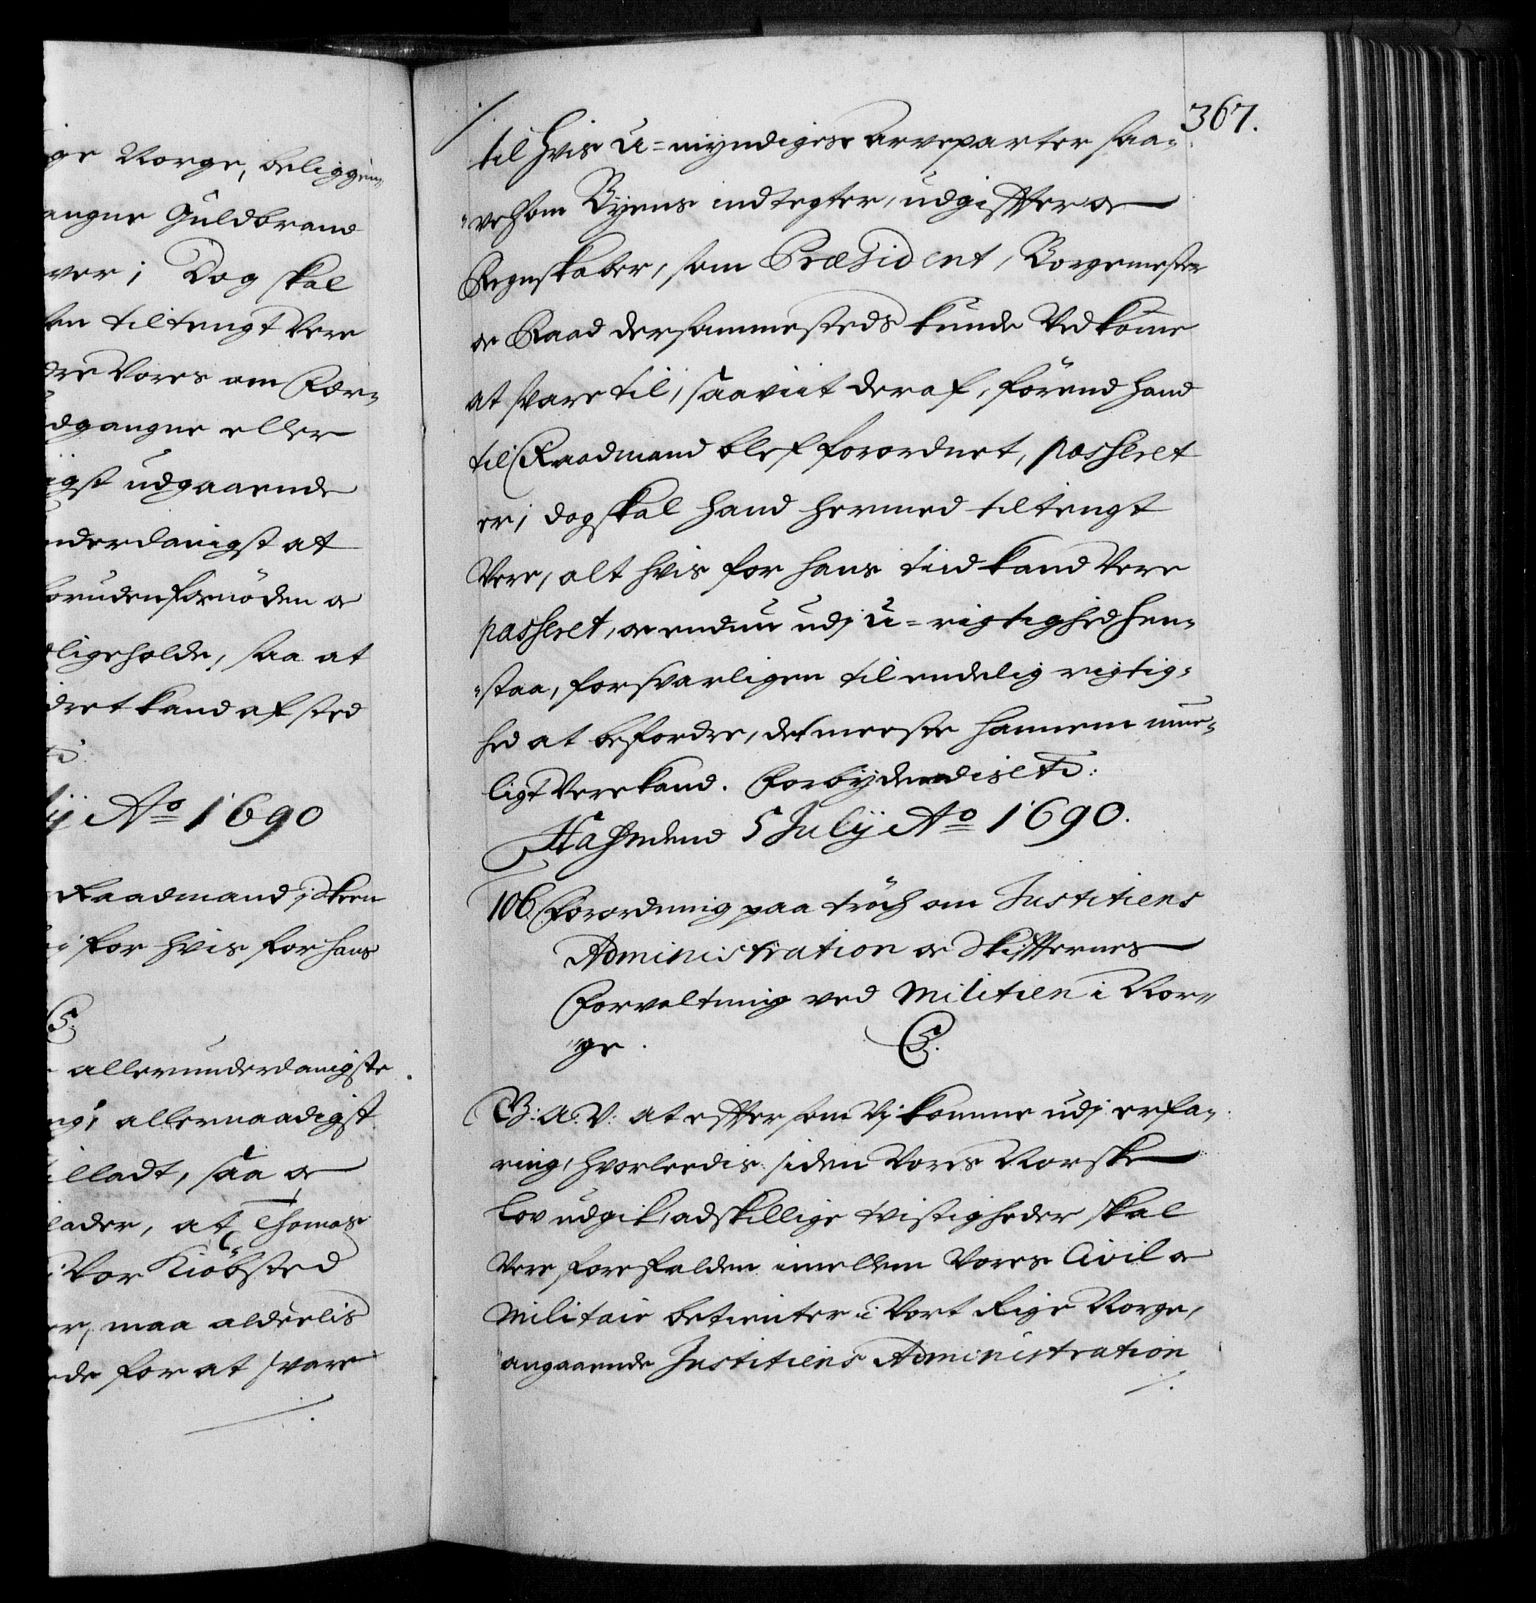 ge Norge, beliggen-
angne Guldbrand
ver; Dog skal
en tiltengt Vere
dre Vores om
dgangne eller
igst udgaaende
nderdanigst at
foruden fornöden oc
ligeholde, saa at
dret kand afsted
ij Ao 1690
Raadmand i Skeen
for hvis for hans
C5.
allerunderdanigste
allernaadigst
illadt, saa oc
lader, at Thomas
Vor Kiöbsted
er, maa alderlis
ede for at svare
367.
til hvis u-myndiges arveparter saa-
velsom Byens indtegter, udgiffter oc
Regnskaber, som Præsident, Borgemester
oc Raad dersammesteds kunde Vedkome
at svare til, saaviit deraf, förend hand
til Raadmand blef forordnet, passeret
er; dog skal hand hermed tiltengt
Vere, alt hvis for hans tiid kand Vere
passeret, oc endnu udj u-rigtighed hen-
staa, forsvarligen til endelig rigtig-
hed at befordre, det meeste hannem mue-
ligt Vere kand. Forbydendis etc:
Hafniæ 5 Julij Ao 1690.
106. Forordning paa tröch om Justitiens
Administration oc Skiffternes
Forvaltning ved Militien i Nor-
ge. C5.
G: A: V: at effter som Vj komme udj erfa-
ring, hvorleedis siden Vores Norske
Lov udgik, adskillige tvistigheder skal
Vere forefalden imellem Vores Civil oc
Militair betienter i Vort Rige Norge,
angaaende Justitiens Administration